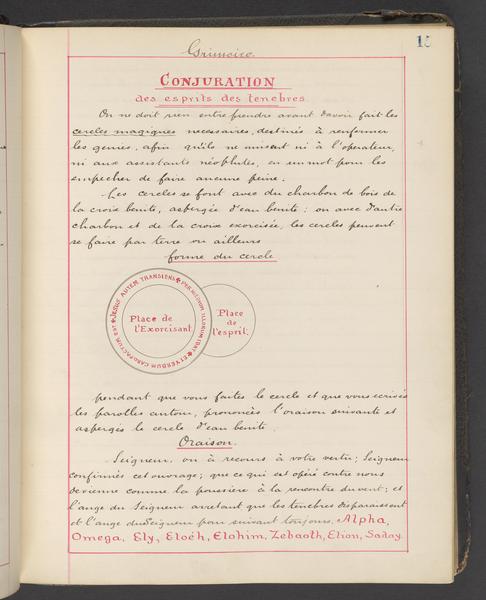 Grimoire
15
CONJURATION
des esprits des tenebres
On ne doit rien entreprendre avant d'avoir fait les
cercles magiques necessaires, destinés à renfermer
les genies, afin qu'ils ne nuisent ni à l'operateur,
ni aux assistants néophites, en un mot pour les
empecher de faire aucune peine.
Les cercles se font avec du charbon de bois de
la croix benite, aspergée d'eau benite; ou avec d'autre
charbon et de la croix exorcisée, les cercles peuvent
se faire par terre ou ailleurs
forme du cercle
JESUS AUTEM TRANSIENS ✠ PER MEDIUM ILLORUM IBAT ✠ ET VERBUM CARO FACTUM EST ✠
Place de
l'Exorcisant
Place
de
l'esprit.
pendant que vous faites le cercle et que vous ecrivés
les parolles autour, prononcés l'oraison suivante et
aspergés le cercle d'eau benite.
Oraison.
Seigneur, on à recours à votre vertu; Seigneur
confirmés cet ouvrage; que ce qui est opéré contre nous
devienne comme la poussiere à la rencontre du vent; et
l'ange du Seigneur arretant que les tenebres disparaissent
et l'ange du Seigneur poursuivant toujours, Alpha,
Omega, Ely, Eloéh, Elohim, Zebaoth, Elion, Saday.